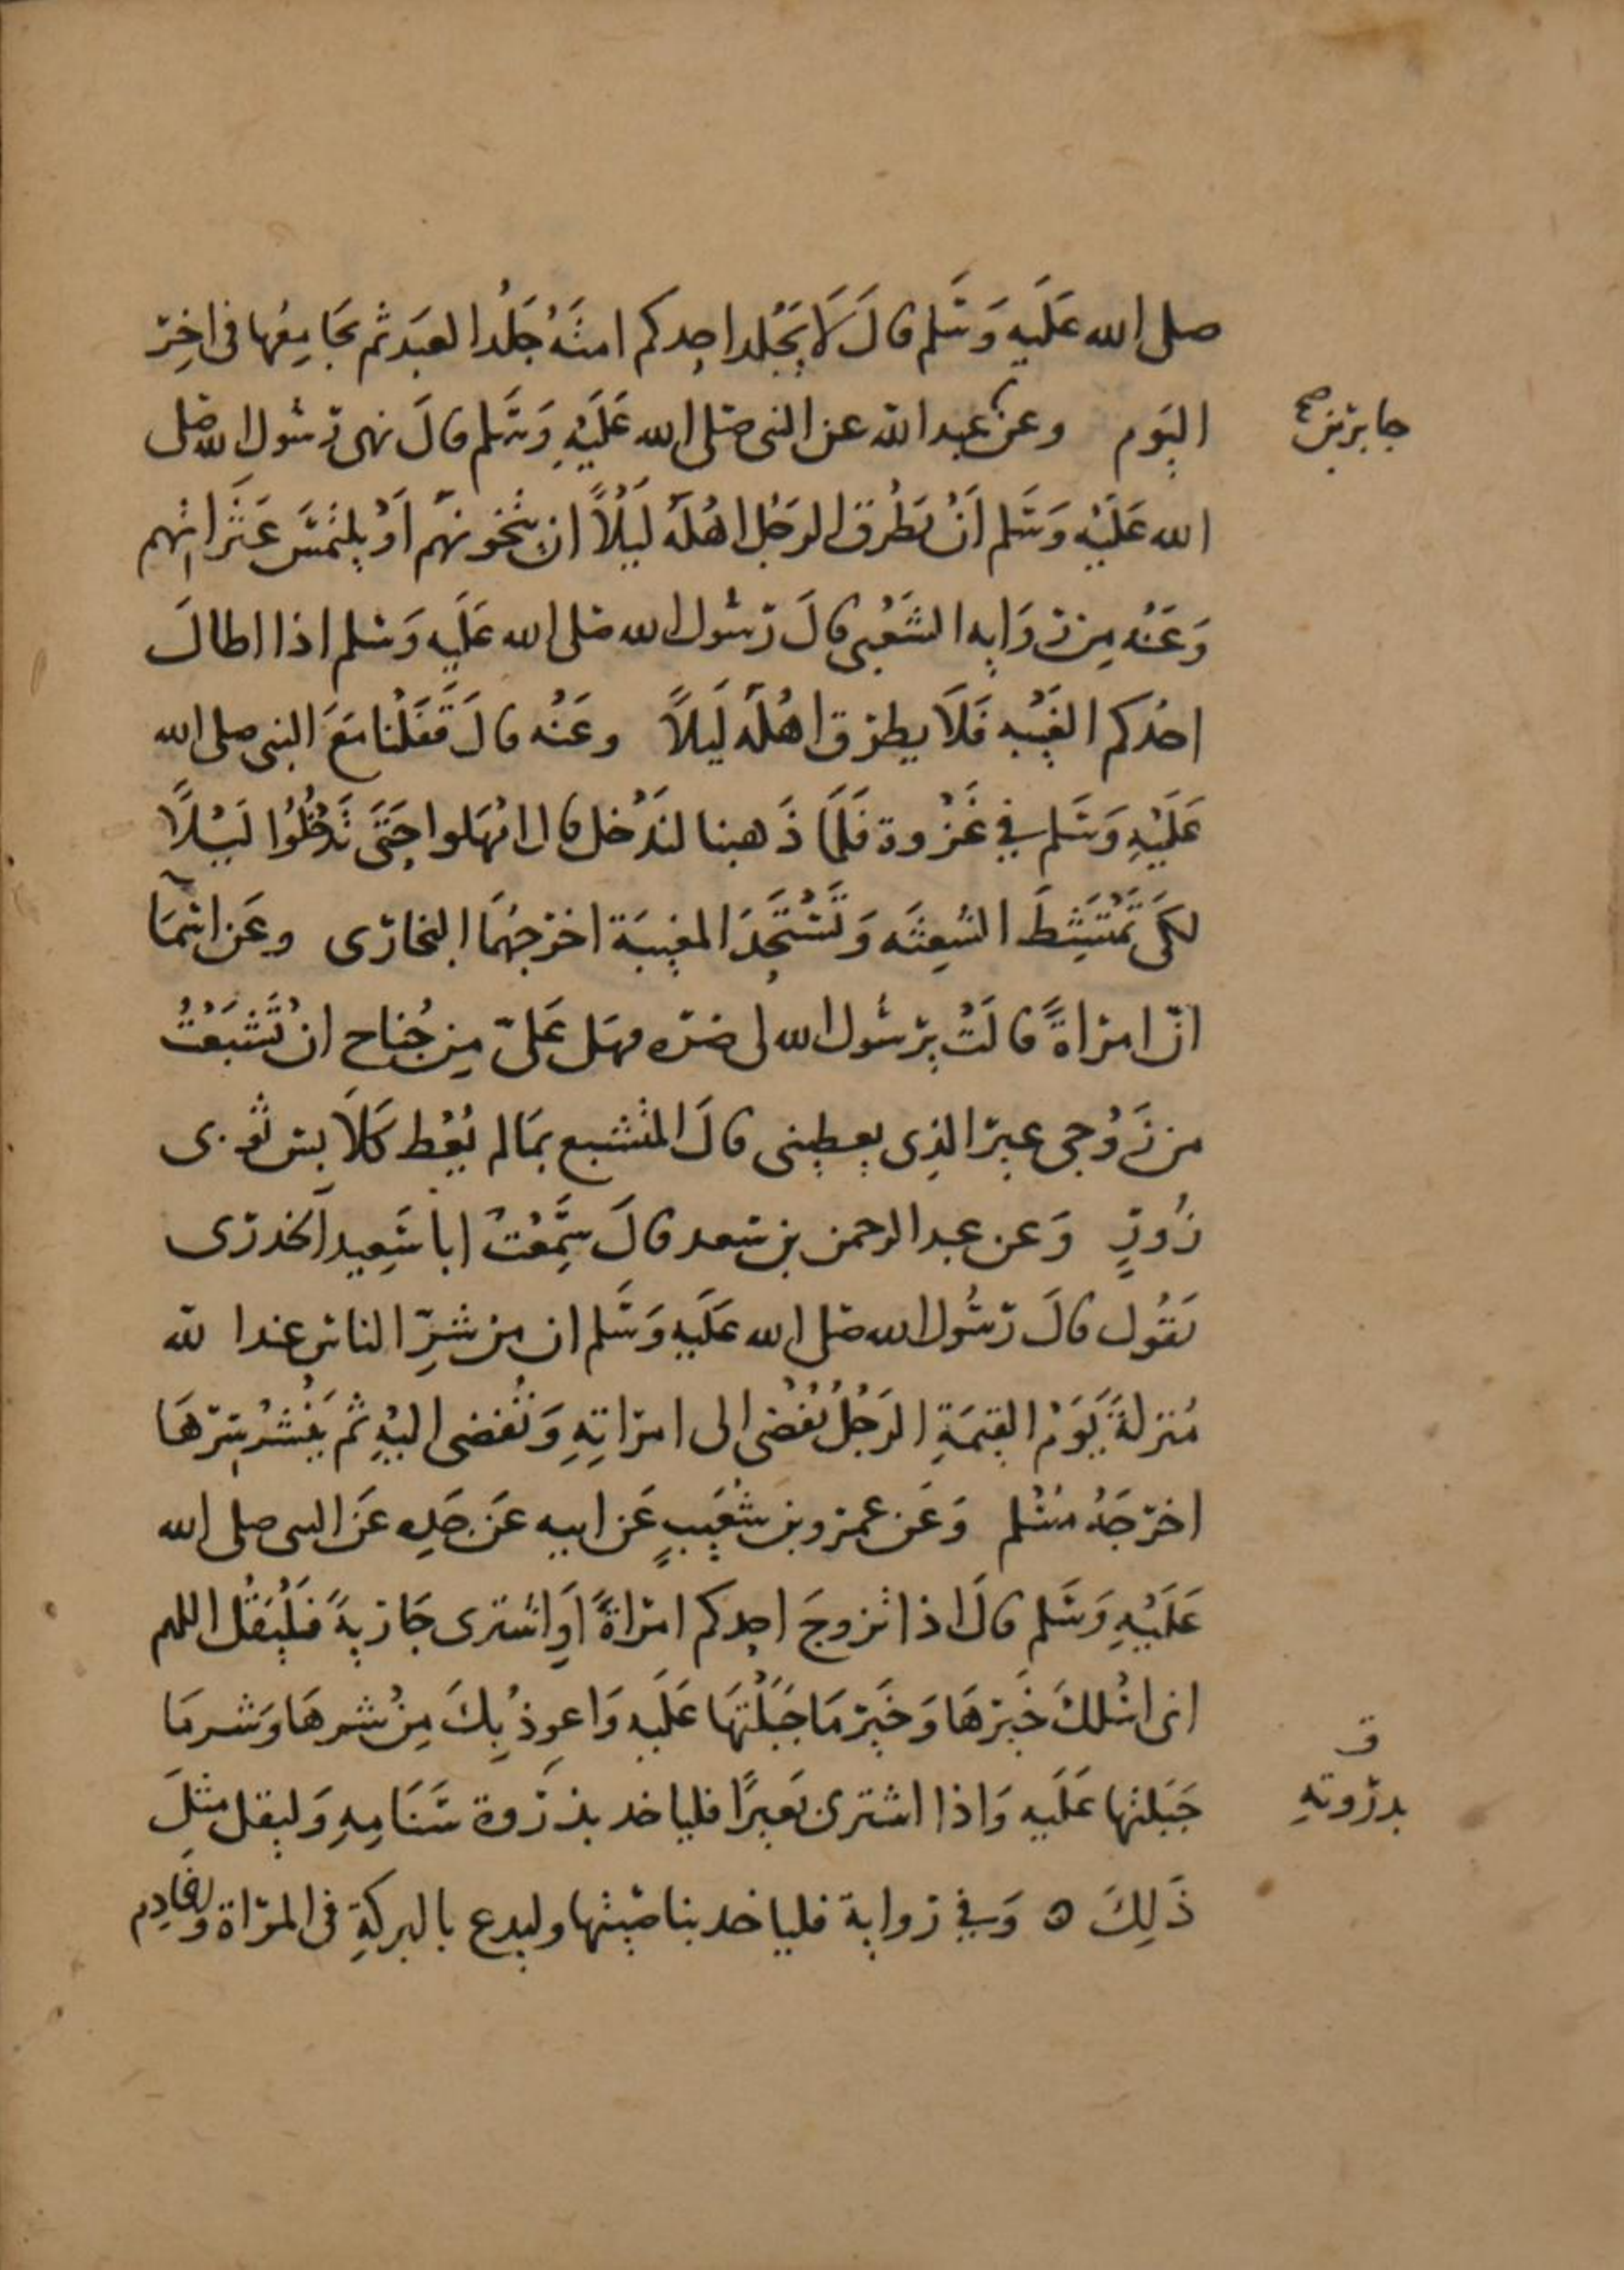 صلى الله عَلَيه وَسَلم قالَ لَا يَجْلِد احِدكم امتَهُ جَلْدَ العَبَد ثم يُجَامِعُها فى اخِر
اليَوم وعن عبد الله عن النبى صَلى الله عَلَيْهِ وَسَلم قالَ نهى رَسُول الله صَلى
جابر بن صح
الله عَلَيْهِ وَسَلم اَنْ يَطْرُق الرَجُل اهْلَهُ لَيْلًا ان يتَخونهَم اَوْ يلتمسَ عَثَراتهم
وَعَنْه مِن رِوَايه الشَعْبى قالَ رَسُول الله صَلى الله عَلَيه وَسَلم اذا اطالَ
احَدكم الغَيْبه فَلَا يطرق اهْلَهُ لَيلًا وعَنْه قالَ قَفَلْنا مَعَ النبى صلى الله
عَلَيْهِ وَسَلم فِي غَزْوة فَلَمَا ذَهبنا لنَدْخل قال امْهَلوا حَتَى نَدْخُلُوا لَيْلًا
لكَى تَمْتَشِطَ الشَعِثَه وَتَسْتَحِدَ المغيبَة اخرَجهُمَا البخارى وعَن اسْمَا
انّ امراةً قالَتْ يرَسُول الله لى ضَره فهَل عَلىّ مِن جُناح ان تَشَبَعْتُ
من زَوْجى غير الذِى يعطينى قالَ المتشبع بمَا لم يُعْط كَلَابِس ثوبى
زُورٍ وَعن عبد الرحمن بن سَعد قالَ سَمِعْتُ ابا سَعِيد الخدرى
يَقُول قالَ رَسُول الله صَلى الله عَلَيهِ وَسَلم ان من شرِّ الناس عند الله
مُنزلةً يَوَمَ القِيمَةِ الرَجُلُ يُفْضى الى امرَاتِهِ وَتُفضى اليْهِ ثم يَنْشُر سِرهَا
اخرَجَهُ مسْلم وَعَن عمرو بن شعَيبٍ عَن ابيه عَن جَدِه عَن النبى صلى الله
عَلَيْهِ وَسَلم قالَ اذا تزوجَ احِدكم امَراةً اَوِ اشترى جَاريَةً فَلْيَقُل اللهم
انى اسْلكَ خَيرَهَا وَخَيرَ مَا جَبَلْتهَا عَلَيه وَاعوذُ بِكَ مِنْ شرهَا وَشرمَا
جَبَلتها عَلَيه وَاذا اشترى بَعيرًا فلياخد بذروة سَنَامِهِ وَليقل مثلَ
ق
بدروته
ذَلِكَ ه وَفي رواية فلياخد بناصيتها وليدع بالبركةِ فى المرَاة والخادِم